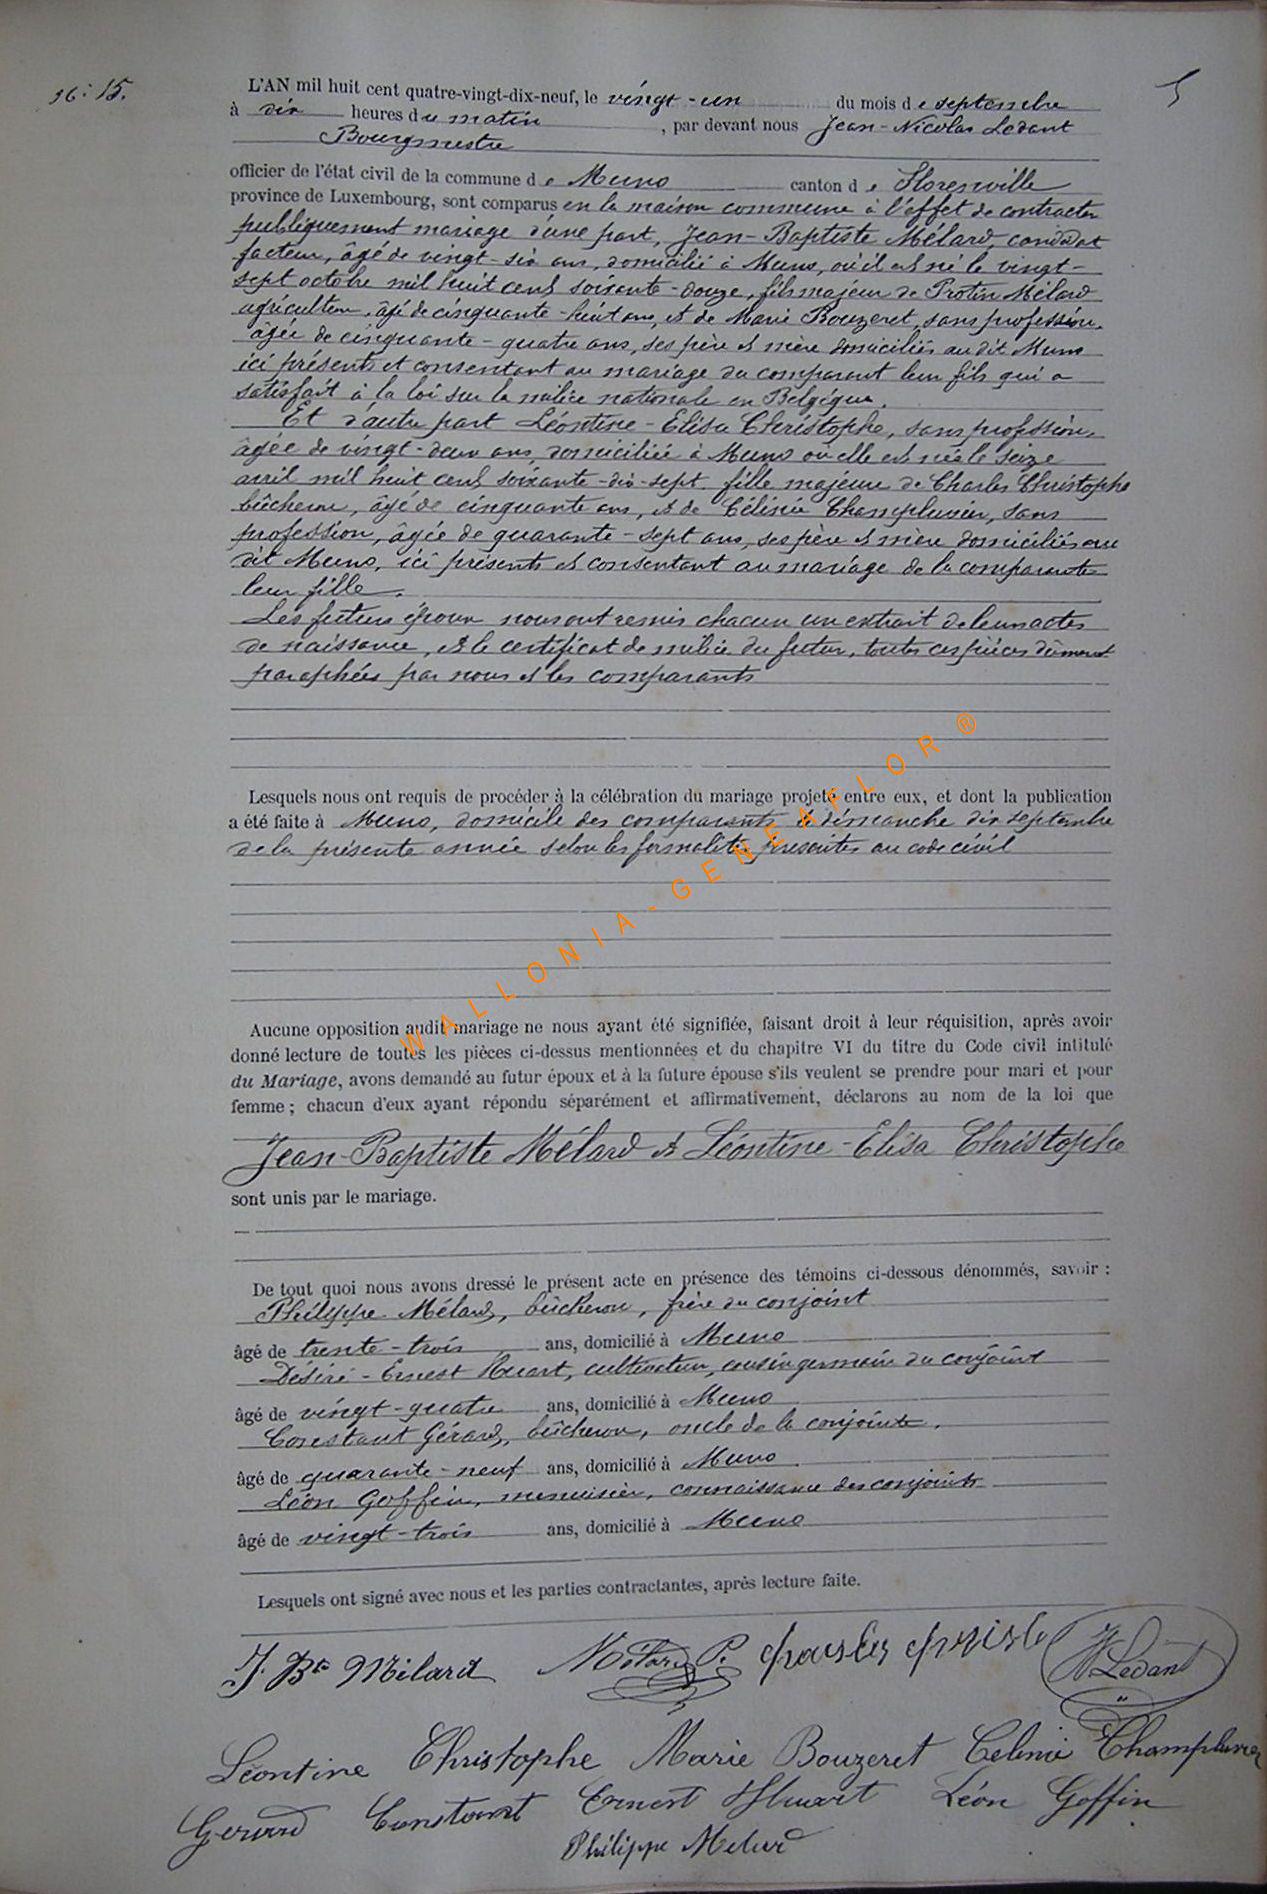 N°: 15.
5
L'AN mil huit cent quatre-vingt-dix-neuf, le vingt-un du mois de septembre
à dix heures du matin, par devant nous Jean-Nicolas Ledant
Bourgmestre
officier de l'état civil de la commune de Muno canton de Florenville
province de Luxembourg, sont comparus en la maison commune à l'effet de contracter
publiquement mariage d'une part, Jean-Baptiste Mélard, candidat
facteur, âgé de vingt-six ans, domicilié à Muno, où il est né le vingt-
sept octobre mil huit cent soixante-douze, fils majeur de Protin Mélard
agriculteur, âgé de cinquante-huit ans, et de Marie Bouzeret, sans profession,
âgée de cinquante-quatre ans, ses père et mère domiciliés au dit Muno
ici présents et consentant au mariage du comparant leur fils qui a
satisfait à la loi sur la milice nationale en Belgique.
Et d'autre part Léontine-Elisa Christophe, sans profession,
âgée de vingt-deux ans, domiciliée à Muno où elle est née le seize
avril mil huit cent soixante-dix-sept, fille majeure de Charles Christophe
bûcheron, âgé de cinquante ans, et de Célinie Champluvier, sans
profession, âgée de quarante-sept ans, ses père et mère domiciliés au
dit Muno, ici présents et consentant au mariage de la comparante
leur fille.
Les futurs époux nous ont remis chacun un extrait de leurs actes
de naissance, et le certificat de milice du futur, toutes ces pièces dûment
paraphées par nous et les comparants
Lesquels nous ont requis de procéder à la célébration du mariage projeté entre eux, et dont la publication
a été faite à Muno, domicile des comparants le dimanche dix septembre
de la présente année selon les formalités prescrites au code civil
WALLONIA-GENEAFLOR®
Aucune opposition audit mariage ne nous ayant été signifiée, faisant droit à leur réquisition, après avoir
donné lecture de toutes les pièces ci-dessus mentionnées et du chapitre VI du titre du Code civil intitulé
du Mariage, avons demandé au futur époux et à la future épouse s'ils veulent se prendre pour mari et pour
femme ; chacun d'eux ayant répondu séparément et affirmativement, déclarons au nom de la loi que
Jean-Baptiste Mélard et Léontine-Elisa Christophe
sont unis par le mariage.
De tout quoi nous avons dressé le présent acte en présence des témoins ci-dessous dénommés, savoir :
Philippe Mélard, bûcheron, frère du conjoint
âgé de trente-trois ans, domicilié à Muno
Désiré-Ernest Huart, cultivateur, cousin germain du conjoint
âgé de vingt-quatre ans, domicilié à Muno
Constant Gérard, bûcheron, oncle de la conjointe.
âgé de quarante-neuf ans, domicilié à Muno
Léon Goffin, menuisier, connaissance des conjoints
âgé de vingt-trois ans, domicilié à Muno
Lesquels ont signé avec nous et les parties contractantes, après lecture faite.
J. Bte Mélard Mélard P. Ledant
Léontine Christophe Marie Bouzeret Celinie Champluvier
Gerard Constant Ernest Huart Léon Goffin
Philippe Melard